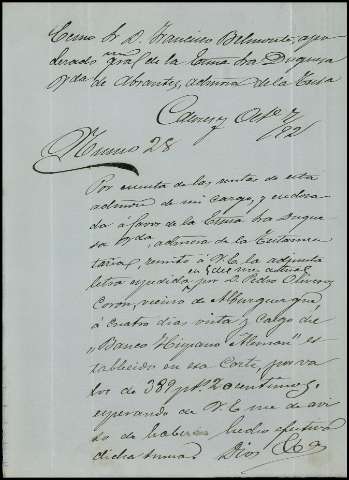 Excmo Sr. D. Francisco Belmonte, apo-
derado gral de la Excma Sra Duquesa
Vda de Abrantes, admora de la Testa
Cáceres y Octe 7/92
Numero 28
Por cuenta de las rentas de esta
admon de mi cargo, y endosa-
da á favor de la Excma Sra Duque-
sa Vda, admora de la Testamen-
taria, remito á V.E. la adjunta
letra espedida en 5 del mes actual por D. Pedro
Coron, vecino de Alburquerque,
á cuatro dias vista y cargo del
"Banco Hispano Aleman" es-
tablecido en esa Corte, por va-
lor de 389 pts. 20 centimos,
esperando de V.E. me de avi-
so de haberse hecho efectiva
dicha suma. Dios &a